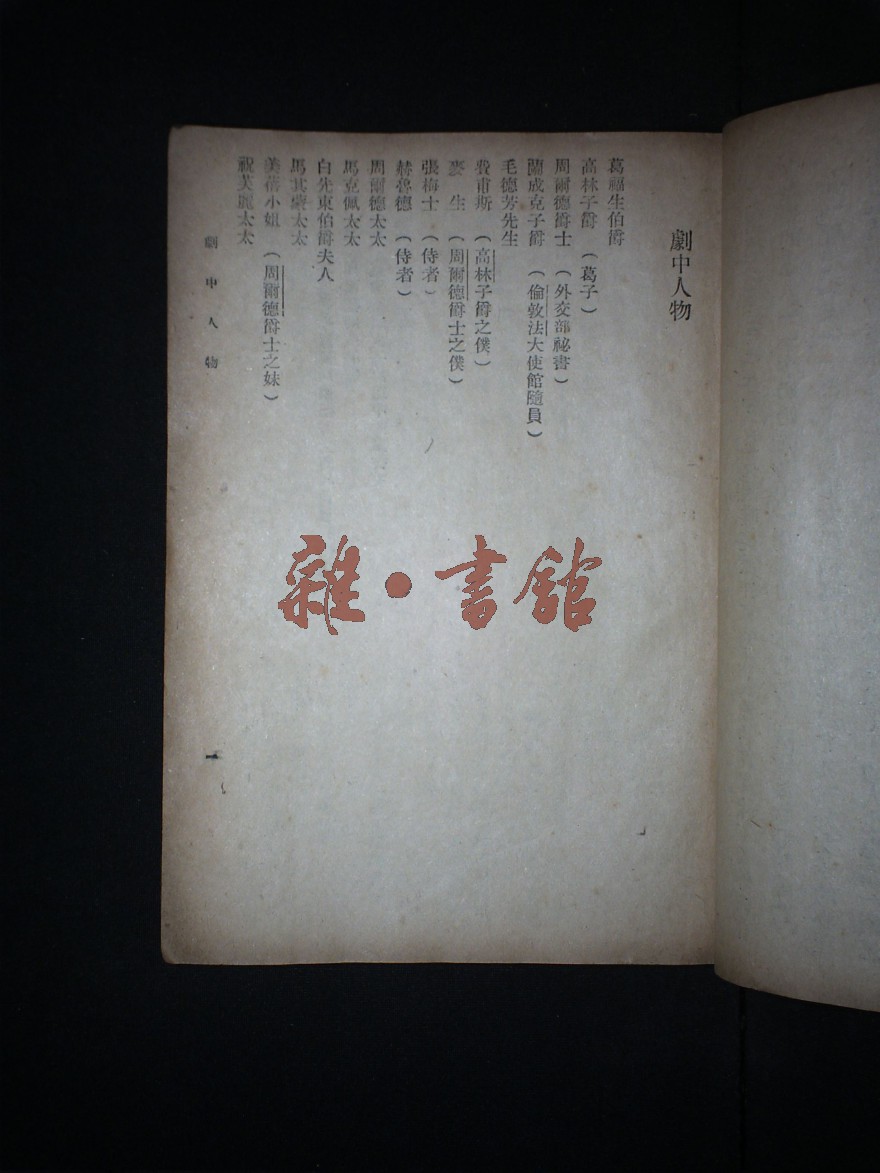 劇中人物
葛福生伯爵
高林子爵（葛子）
周爾德爵士（外交部祕書）
蘭成克子爵（倫敦法大使館隨員）
毛德芳先生
費甫斯（高林子爵之僕）
麥生（周爾德爵士之僕）
張梅士（侍者）
赫魯德（侍者）
周爾德太太
馬克佩太太
白先東伯爵夫人
馬其蒙太太
美蓓小姐（周爾德爵士之妹）
祝芙麗太太
劇中人物
一
雜·書館